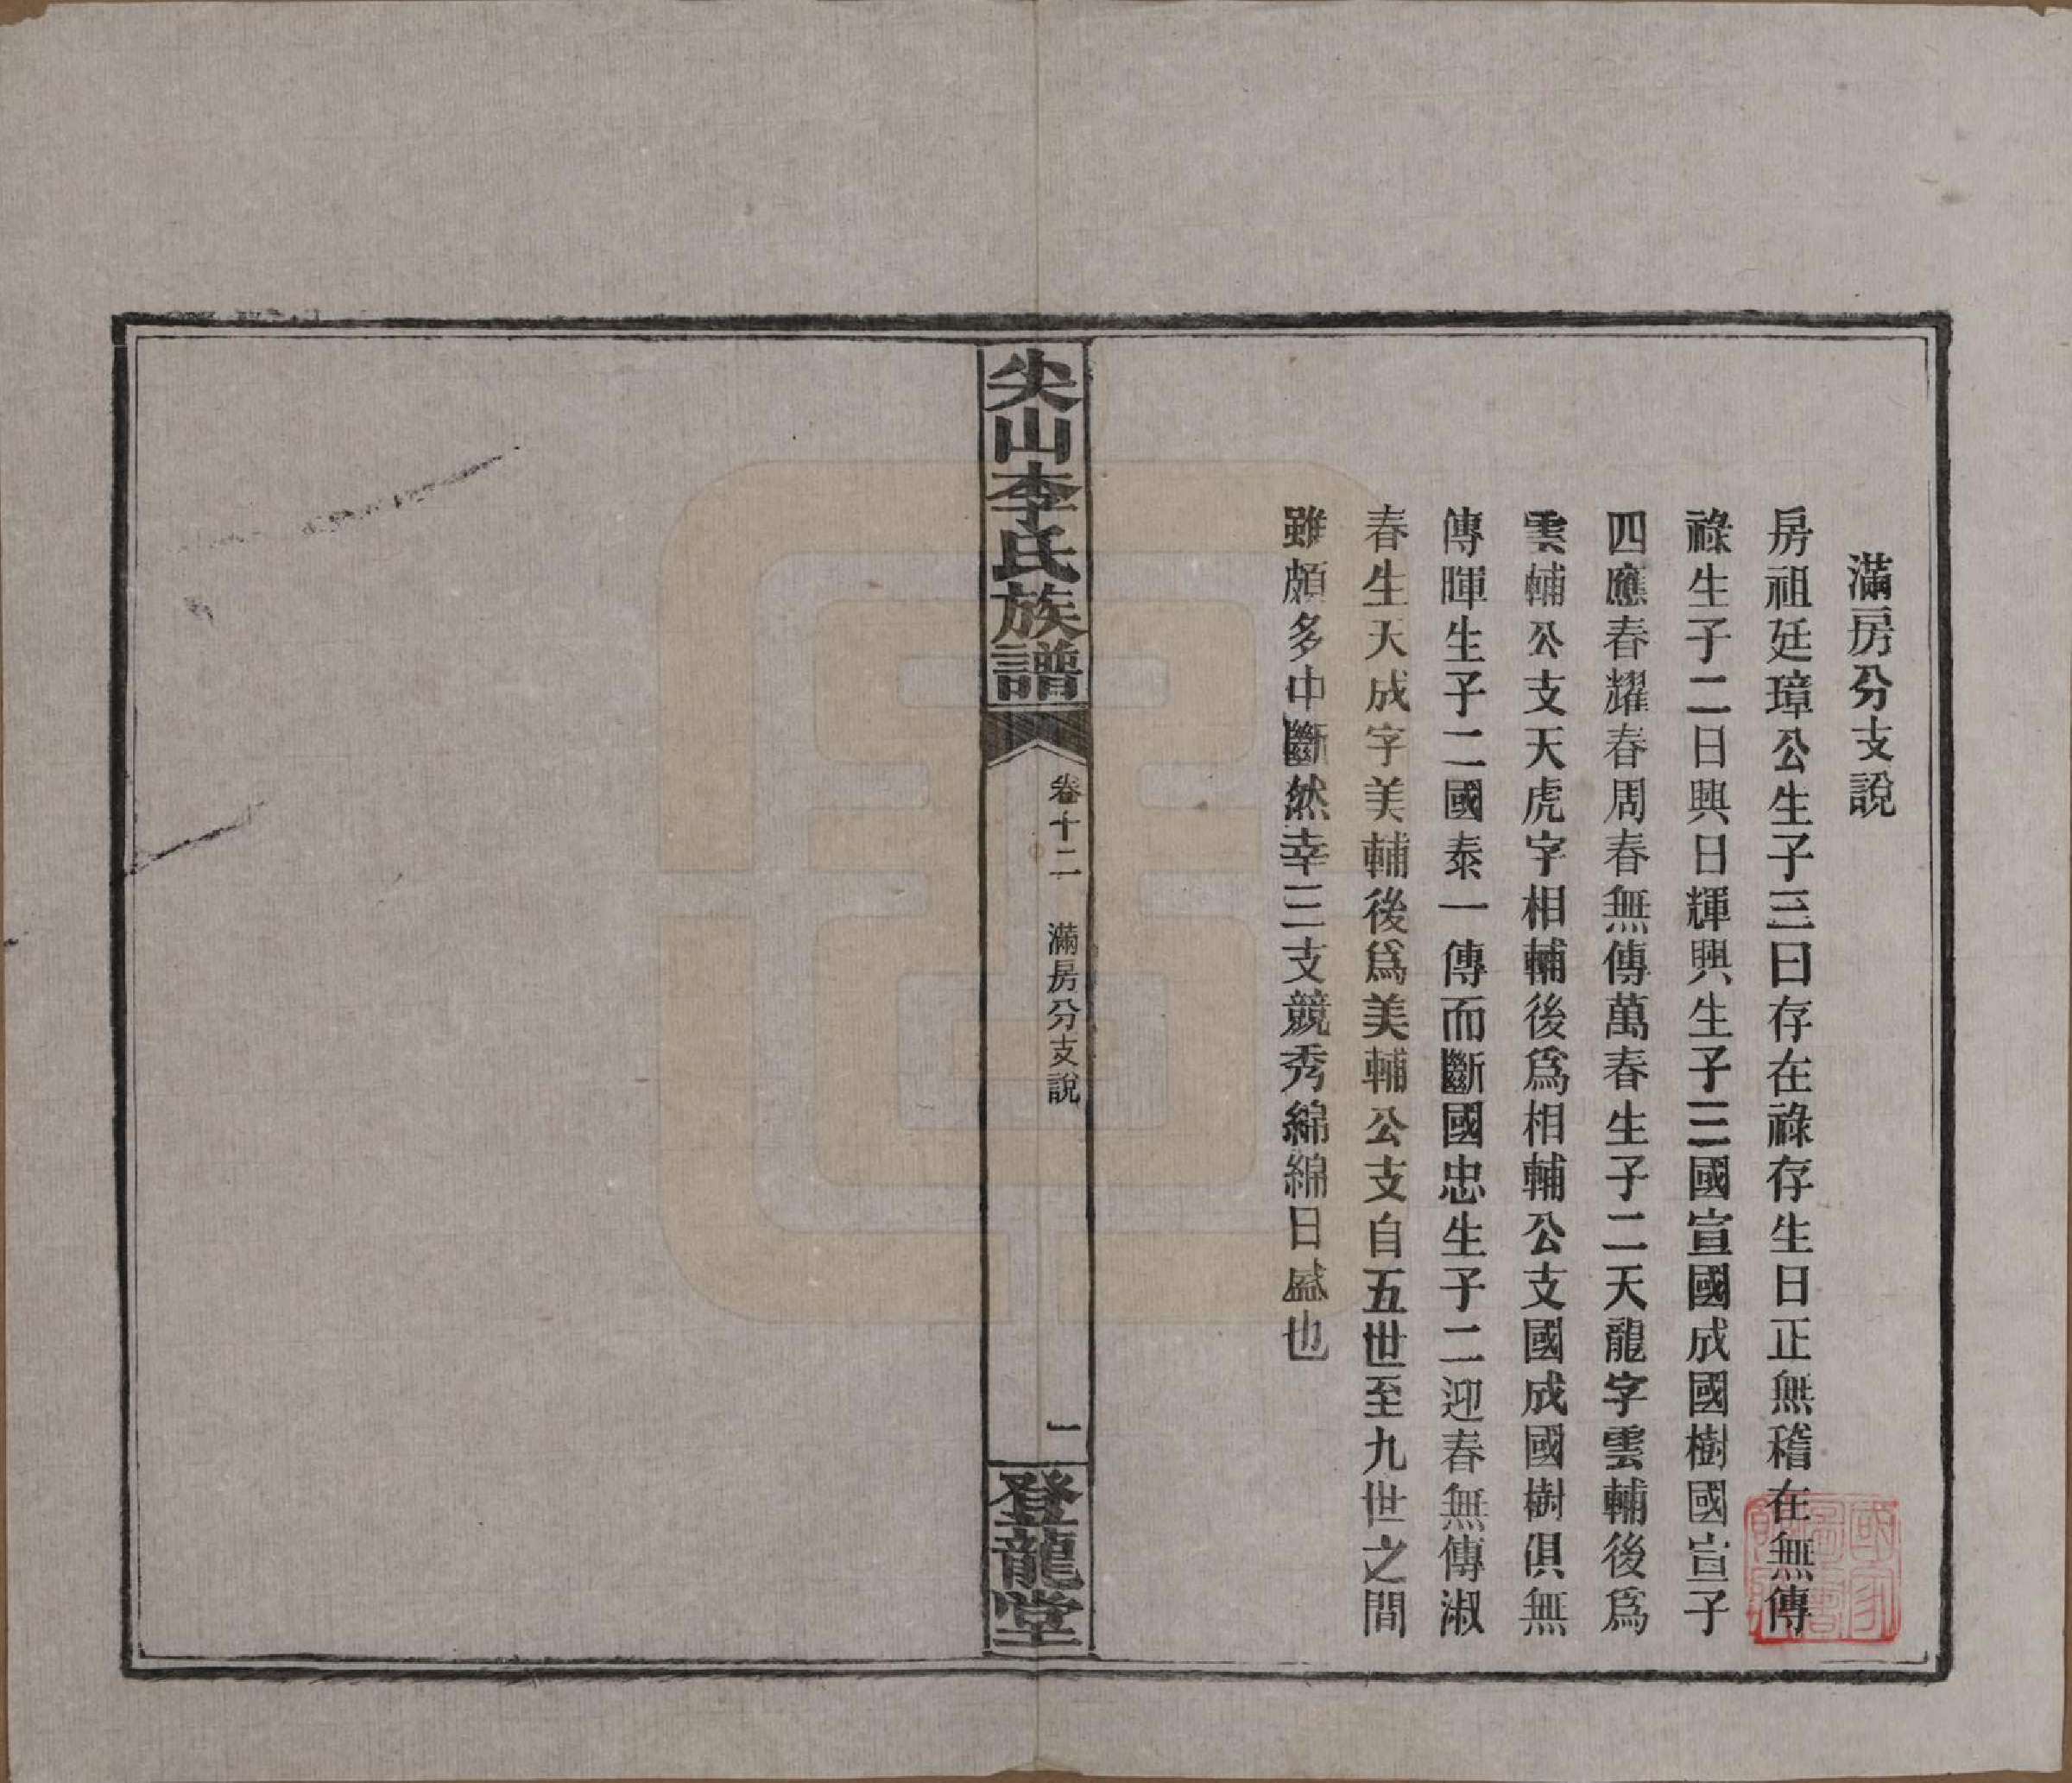 滿房分支說
房祖廷璋公生子三曰存在祿存生日正無稽在無傳
祿生子二日興日輝興生子三國宣國成國樹國宣子
四應春耀春周春無傳萬春生子二天龍字雲輔後爲
雲輔公支天虎字相輔後爲相輔公支國成國樹俱無
傳暉生子二國泰一傳而斷國忠生子二迎春無傳淑
春生天成字美輔後爲美輔公支自五世至九世之間
雖頗多中斷然幸三支競秀綿綿日盛也
尖山李氏族譜
卷十二 滿房分支說
一
登龍堂
國家圖書館藏